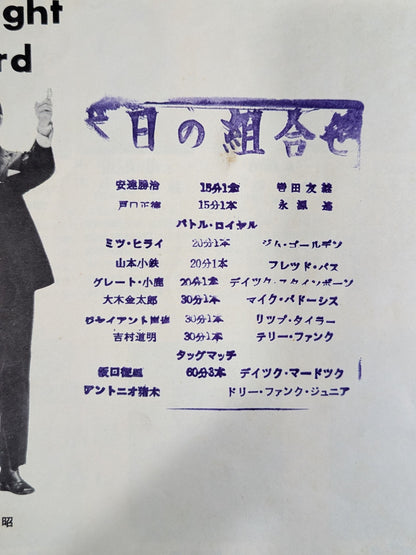 ght
rd
今日の組合せ
安達勝治 15分1本 誉田友継
戸口正徳 15分1本 永源遙
バトル・ロイヤル
ミツ・ヒライ 20分1本 ジム・ゴールデン
山本小鉄 20分1本 フレッド・バス
グレート・小鹿 20分1本 デイック・スタインボーン
大木金太郎 30分1本 マイク・パドーシス
ジャイアント馬場 30分1本 リップ・タイラー
吉村道明 30分1本 テリー・ファンク
タッグマッチ
坂口征二 60分3本 デイツク・マードック
アントニオ猪木 ドリー・ファンク・ジュニア
昭